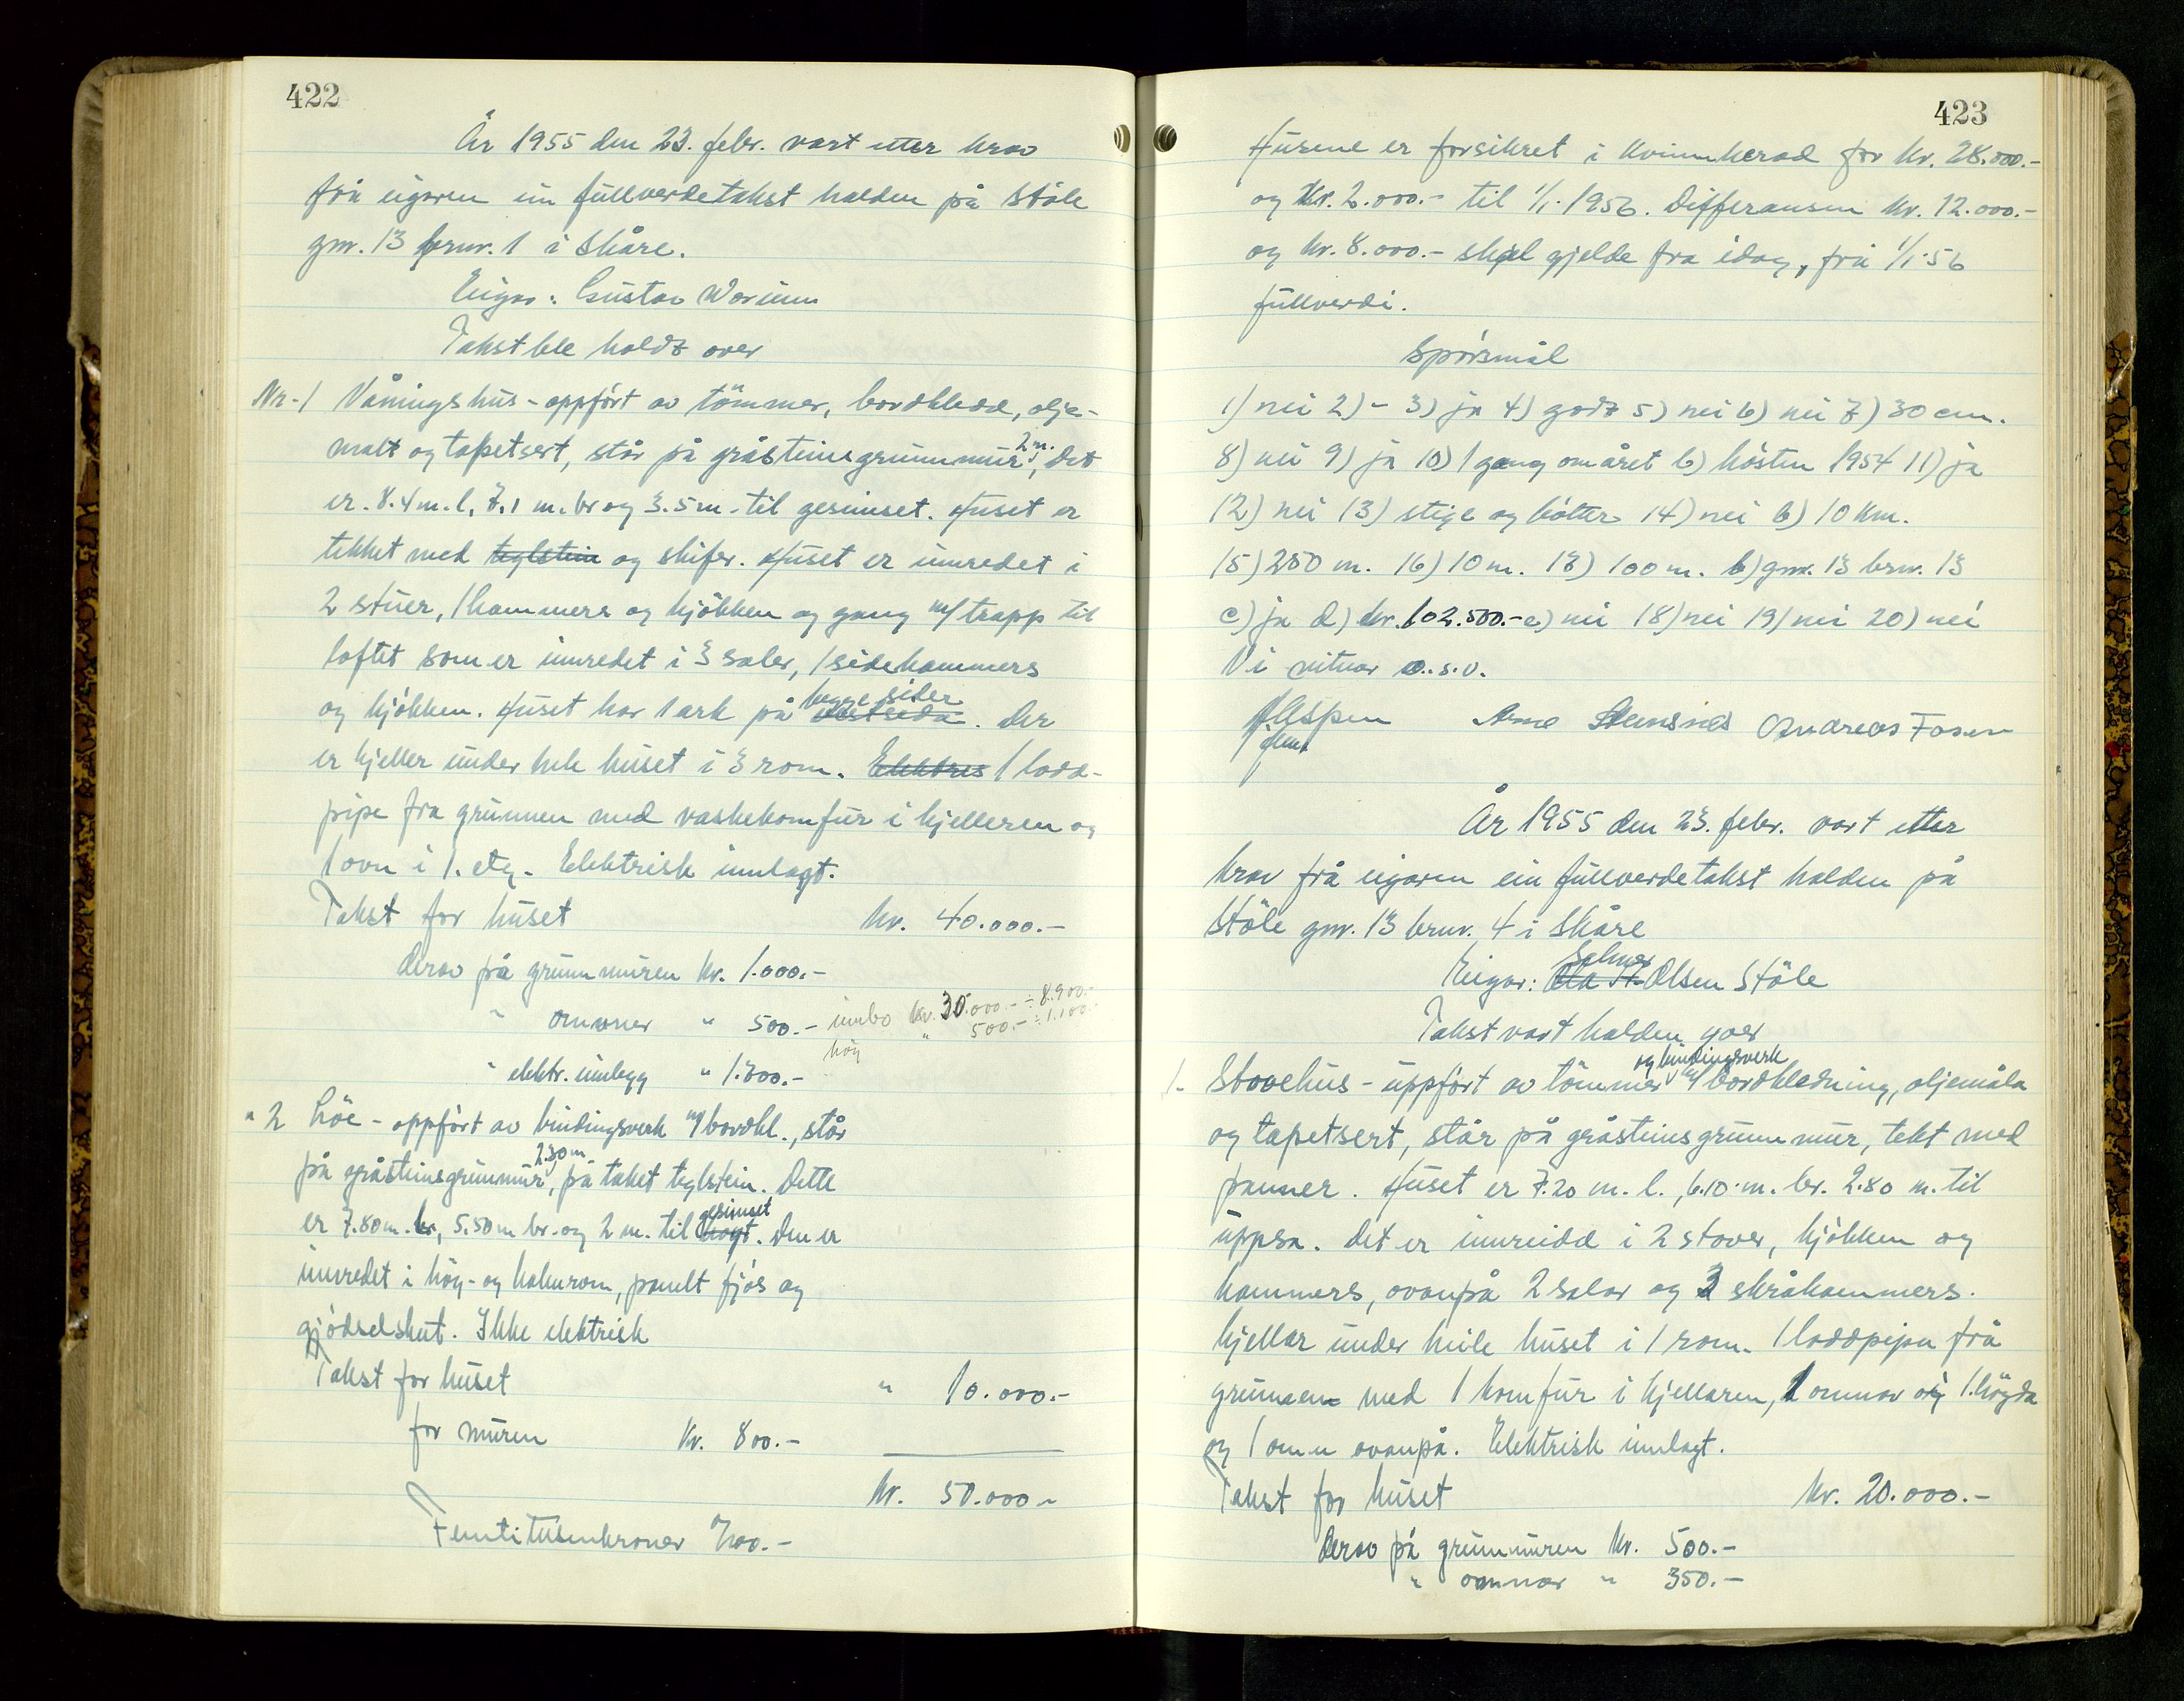 422
År 1955 den 23. febr. vart etter krav
frå eigaren ein fullverdetakst halden på Stöle
gnr. 13 brnr. 1 i Skåre.
Eigar: Gustav Worum
Takst ble holdt over
Nr-1 Våningshus - oppført av tömmer, bordkledd, olje-
malt og tapetsert, står på gråsteinsgrunnmur 2 m., det
er 8.4 m. l, 7.1 m. br og 3.5 m. til gesimset. Huset er
tekket med teglstein og skifer. Huset er innredet i
2 stuer, 1 kammers og kjökken og gang m/trapp til
loftet som er innredet i 3 saler, 1 sidekammers
og kjökken. Huset har 1 ark på begge sider. Der
er kjeller under hele huset i 3 rom. Elektres 1 lodd-
pipe fra grunnen med vaskekomfur i kjelleren og
1 ovn i 1. etg. Elektrisk innlagt.
Takst for huset kr. 40.000.-
derav på grunnmuren kr. 1.000.-
" omner " 500.- innbo kr. 30.000.- ÷ 8.900.-
höy " 500.- ÷ 1.100.-
" elektr. innlegg " 1.300.-
" 2 Löe - oppført av bindingsverk m/bordkl., står
på gråsteinsgrunnmur 2.30 m, på taket teglstein. Dette
er 7.80 m. l, 5.50 m br. og 2 m. til gesimset. Den er
innredet i höy- og halmrom, panelt fjös og
gjödselshut. Ikke elektrisk
Takst for huset " 10.000.-
for muren kr. 800.-
kr. 50.000 -
Femtitusenkroner 0/100.-
423
Husene er forsikret i Kvinnherad for kr. 28.000.-
og kr. 2.000.- til 1/1. 1956. Differansen kr. 12.000.-
og kr. 8.000.- skal gjelde fra idag, frå 1/1-56
fullverdi.
Spörsmål
1) nei 2) - 3) ja 4) godt 5) nei 6) nei 7) 30 cm.
8) nei 9) ja 10) 1 gang om året b) hösten 1954 11) ja
12) nei 13) stige og bötter 14) nei b) 10 km.
15) 250 m. 16) 10 m. 17) 100 m. b) gnr. 13 brnr. 13
c) ja d) kr. 102.500.- e) nei 18) nei 19) nei 20) nei
Vi vitnar o.s.v.
Aspen Arne Stensnes Andreas Fosen
År 1955 den 23. febr. vart etter
krav frå eigaren ein fullverdetakst halden på
Stöle gnr. 13 brnr. 4 i Skåre
Salmer
Eigar: Ola H. Olsen Stöle
Takst vart halden yver
og bindingsverk
1. Stovehus - uppfört av tömmer m/bordkledning, oljemåla
og tapetsert, står på gråsteinsgrunnmur, tekt med
panner. Huset er 7.20 m. l., 6.10. m. br. 2.80 m. til
uppsa. Det er innreidd i 2 stover, kjökken og
kammers, ovanpå 2 salar og 3 skråkammers.
Kjellar under heile huset i 1 rom. 1 loddpipa frå
grunnen med 1 komfur i kjellaren, 2 omnar i 1. högda
og 1 omn ovanpå. Elektrisk innlagt.
Takst for huset kr. 20.000.-
Derav på grunnmuren kr. 500.-
" omnar " 350.-